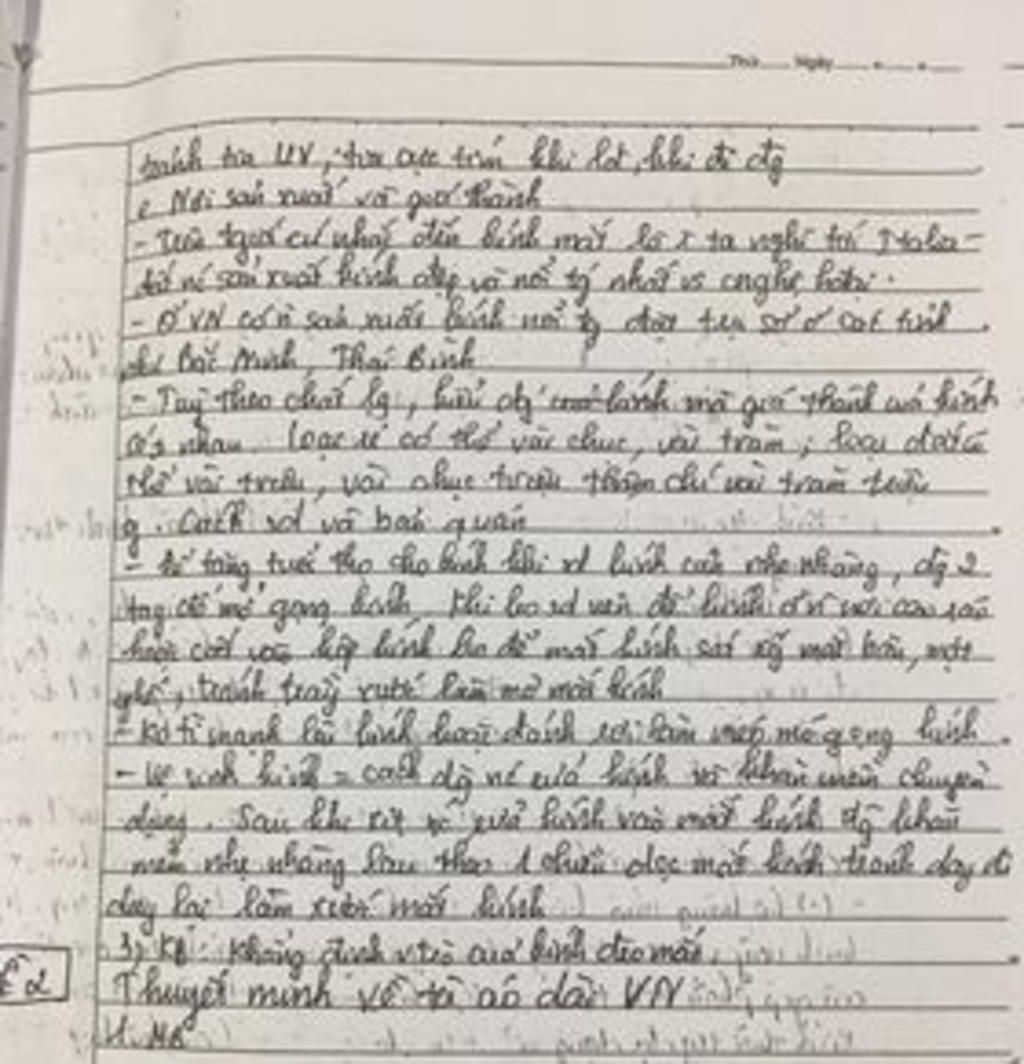 Thứ Ngày
tránh tia UV, tia cực tím khi lặn, khi đi đg
e Nơi sản xuất và giá thành
- Trên tgới cứ nhắc đến kính mắt là ta nghĩ tới Italia -
đất nc sản xuất kính đẹp và nổi tg nhất vs cnghệ htại.
- Ở VN có n sản xuất kính nổi tg đặt trụ sở ở các tỉnh
như Bắc Ninh, Thái Bình
- Tuỳ theo chất lg, kiểu kính mà giá thành của kính
nhau. loại rẻ có thể vài chục, vài trăm; loại đắt có
thể vài triệu, vài chục triệu thậm chí vài trăm triệu
g. Cách sd và bảo quản
- Để tăng tuổi thọ cho kính khi sd kính cần nhẹ nhàng, dg 2
tay để mở gọng kính. Khi ko sd nên để kính ở vị
hoặc cất vào hộp kính ko để mắt kính sát mặt bàn, mặt
ghế, tránh trầy xước làm mờ mắt kính
- Ko tì mạnh lên kính hoặc đánh rơi làm méo mó gọng kính.
- Vệ sinh kính = cách dg nc rửa kính và khăn mềm chuyên
dụng. Sau khi xịt nc rửa kính vào mắt kính dg khăn
mềm nhẹ nhàng lau theo 1 chiều dọc mắt kính tránh day đi
day lại làm xước mắt kính
3) KB: Khẳng định vtrò của kính đeo mắt.
Đề 2 Thuyết minh về tà áo dài VN
MB